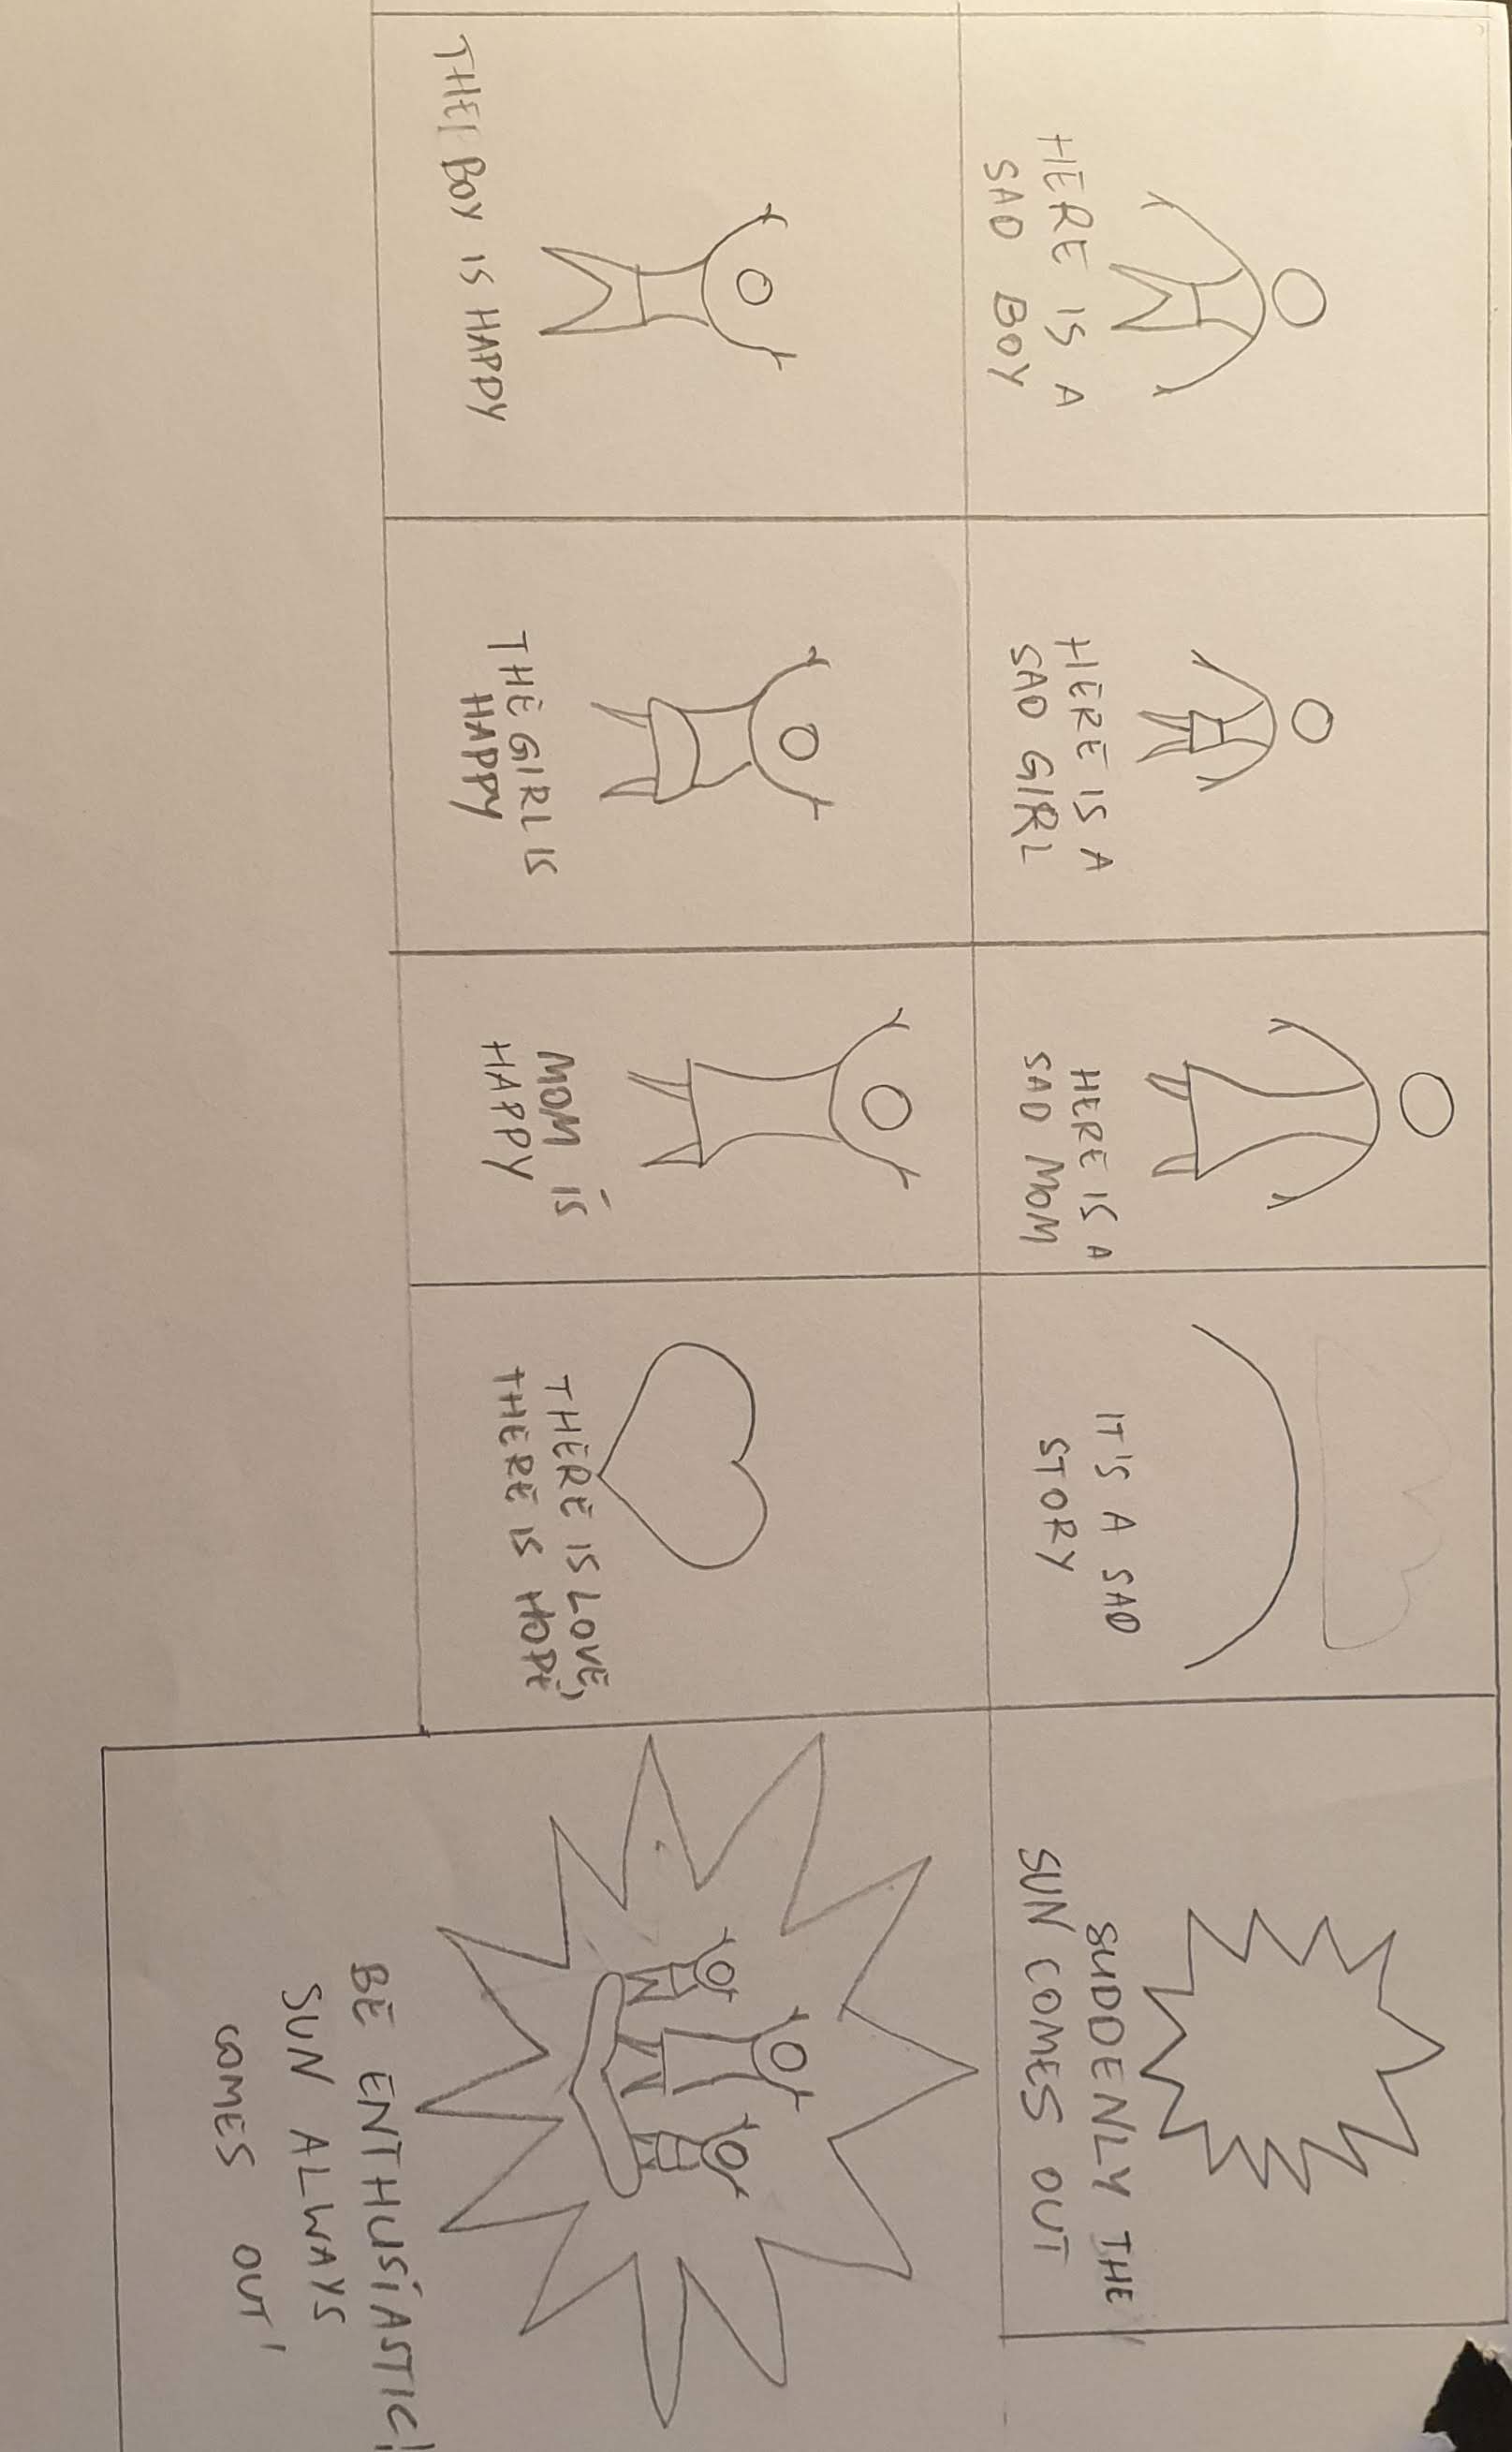 HERE IS A
SAD BOY
HERE IS A
SAD GIRL
HERE IS A
SAD MOM
IT'S A SAD
STORY
SUDDENLY THE
SUN COMES OUT
THE BOY IS HAPPY
THE GIRL IS
HAPPY
MOM IS
HAPPY
THERE IS LOVE,
THERE IS HOPE
BE ENTHUSIASTIC!
SUN ALWAYS
COMES OUT!